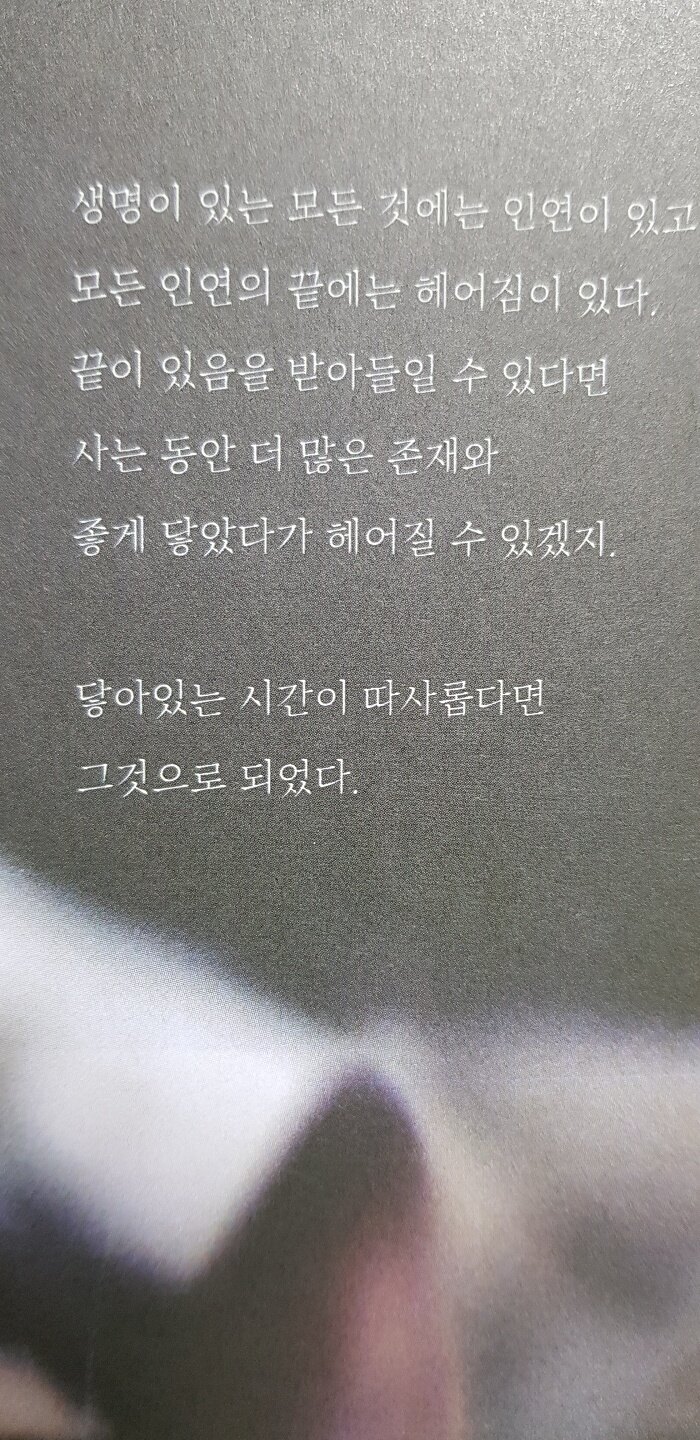 생명이 있는 모든 것에는 인연이 있고
모든 인연의 끝에는 헤어짐이 있다.
끝이 있음을 받아들일 수 있다면
사는 동안 더 많은 존재와
좋게 닿았다가 헤어질 수 있겠지.
닿아있는 시간이 따사롭다면
그것으로 되었다.